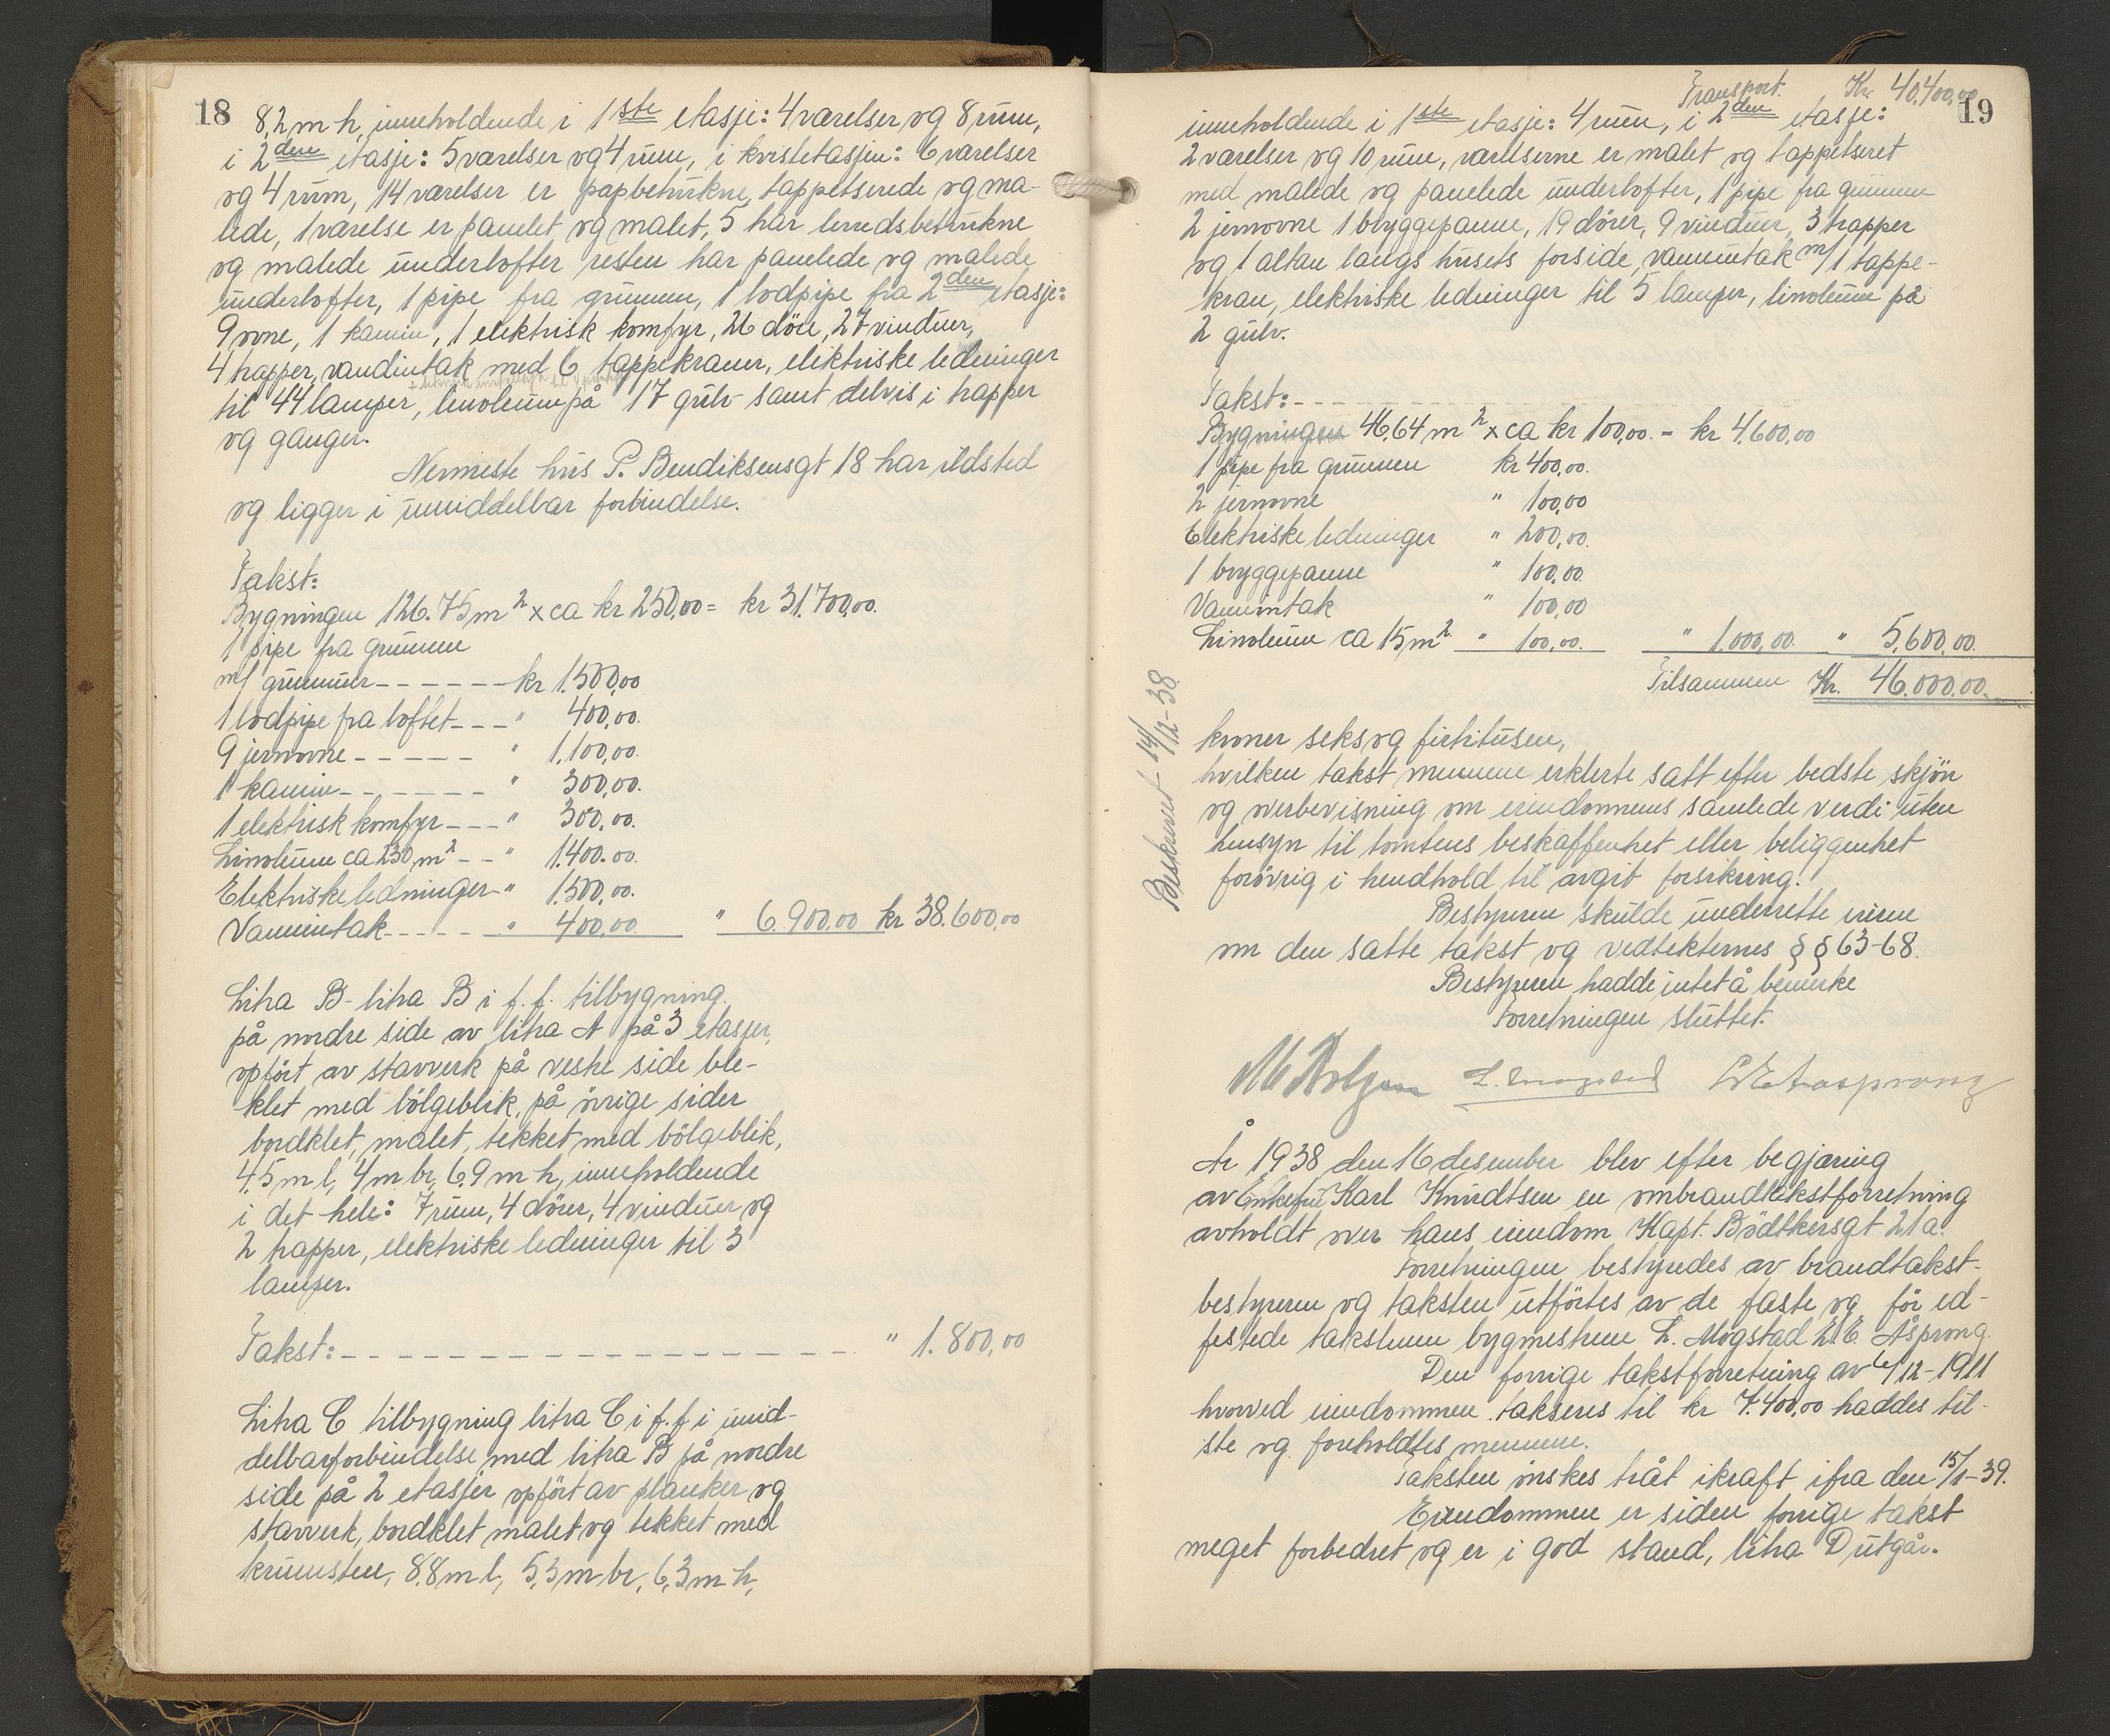 18
8,2 m h, inneholdende i 1ste etasje: 4 værelser og 8 rum,
i 2den etasje: 5 værelser og 4 rum, i kvistetasjen: 6 værelser
og 4 rum, 14 værelser er papbetrukne, tappetserede og ma-
lede, 1 værelse er panelet og malet, 5 har lerredsbetrukne
og malede underlofter resten har panelede og malede
underlofter, 1 pipe fra grunnen, 1 lodpipe fra 2den etasje:
9 ovne, 1 kamin, 1 elektrisk komfyr, 26 döre, 27 vinduer,
4 trapper, vandintak med 6 tappekraner, elektriske ledninger
til 44 lamper, linoleum på 17 gulv samt delvis i trapper
og ganger.
Nermeste hus P. Bendiksensgt 18 har ildsted
og ligger i umiddelbar forbindelse.
Takst:
Bygningen 126.75 m2 x ca kr 250,00 = kr 31.700,00.
1 pipe fra grunnen
m/ grunnur - - - - - - - kr 1.500,00
1 lodpipe fra loftet - - - " 400,00.
9 jernovne - - - - - " 1.100,00.
1 kamin - - - - - - - " 300,00.
1 elektrisk komfyr - - - " 300,00.
Linoleum ca 230 m2 - - " 1.400.00.
Elektriske ledninger - " 1.500,00.
Vannintak - - - - - " 400,00. " 6.900,00 kr 38.600,00
Litra B - litra B i f. f. tilbygning
på nordre side av litra A på 3 etasjer,
opfört av stavverk på vestre side ble-
klet med bölgeblik, på övrige sider
bordklet, malet, tekket med bölgeblik,
4,5 m l, 4 m br, 6,9 m h, inneholdende
i det hele: 7 rum, 4 dörer, 4 vinduer og
2 trapper, elektriske ledninger til 3
lamper.
Takst: - - - - - - - - - - - - - - - - - - " 1.800,00
Litra C tilbygning litra C i f. f i umid-
delbar forbindelse med litra B på nordre
side på 2 etasjer opfört av planker og
stavverk, bordklet malet og tekket med
krumsten, 8,8 m l, 5,3 m br, 6,3 m h,
Transport. Kr. 40.400,00
19
inneholdende i 1ste etasje: 4 rum, i 2den etasje:
2 værelser og 10 rum, værelserne er malet og tappetseret
med malede og panelede underlofter, 1 pipe fra grunnen
2 jernovne 1 bryggepanne, 19 dörer, 9 vinduer, 3 trapper
og 1 altan langs husets forside, vannintak m/ 1 tappe-
kran, elektriske ledninger til 5 lamper, linoleum på
2 gulv.
Takst: - - - - - -
Bygningen 46,64 m2 x ca kr 100,00. = kr 4.600,00
1 pipe fra grunnen kr 400,00.
2 jernovne " 100,00
Elektriske ledninger " 200,00.
1 bryggepanne " 100,00
Vannintak " 100,00
Linoleum ca 15 m2 " 100,00. " 1.000,00. " 5.600,00.
Tilsammen Kr. 46.000.00.
Beskrevet 14/12-38
kroner seksogfirtitusen,
hvilken takst mennene erklerte satt efter bedste skjön
og overbevisning om eiendommens samlede verdi uten
hensyn til tomtens beskaffenhet eller beliggenhet
forövrig i hendhold til avgit forsikring.
Bestyreren skulde underrette eieren
om den satte takst og vedtekternes §§ 63-68.
Bestyreren hadde intet å bemerke
Forretningen sluttet.
L. Mogstad L E Aasprong
År 1938 den 16 desember blev efter begjæring
av Enkefru Karl Knudtsen en ombrandtakstforretning
avholdt over hans eiendom Kapt. Bödtkersgt 21 a.
Forretningen bestyredes av brandtakst-
bestyreren og taksten utförtes av de faste og för ed-
festede takstmenn bygmestrene L. Mogstad L. E. Åsprong.
Den forrige takstforretning av 6/12-1911
hvorved eiendommen takseres til kr 7.400,00 haddes til-
ste og foreholdtes mennene.
Taksten önskes tråt ikraft ifra den 15/1-39.
Eiendommen er siden forrige takst
meget forbedret og er i god stand, litra D utgår.